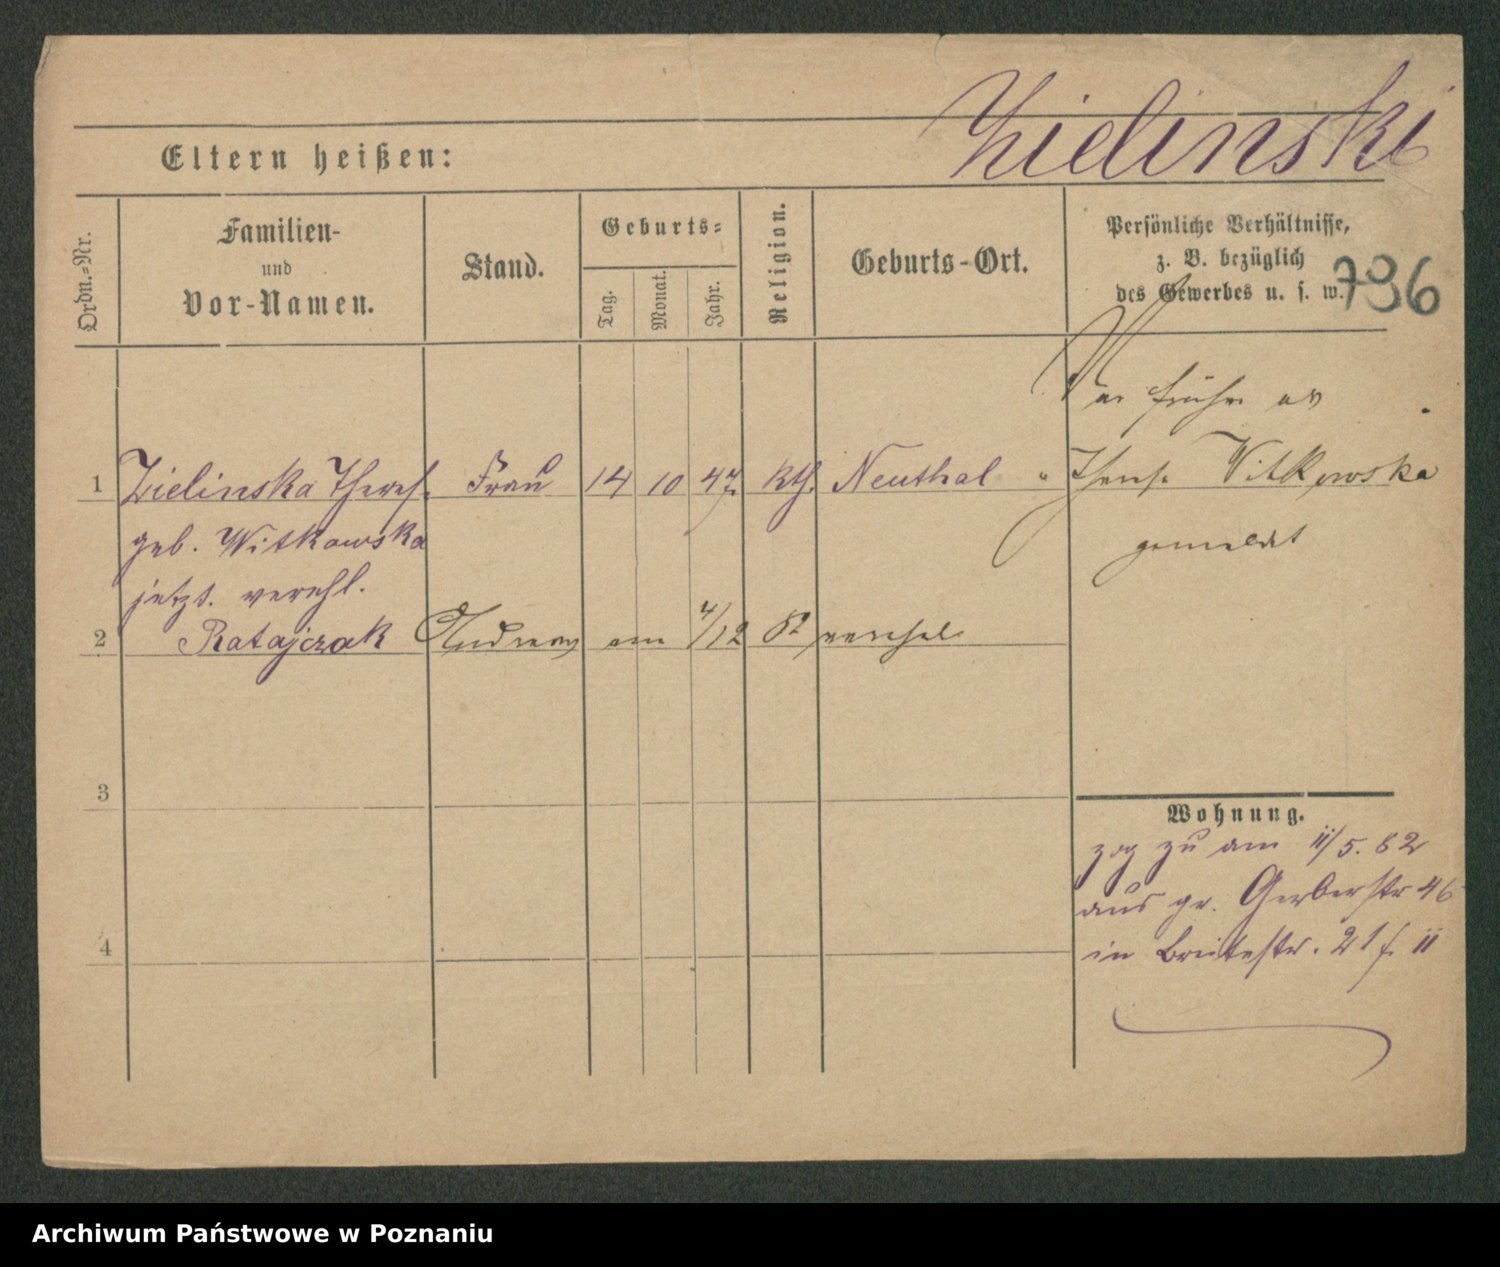 Zielinski
Eltern heißen:
Ordn.=Nr.
Familien-
und
Vor-Namen.
Stand.
Geburts=
Tag.
Monat.
Jahr.
Religion.
Geburts-Ort.
Persönliche Verhältnisse,
z. B. bezüglich
des Gewerbes u. s. w.
796
War früher als
1 Zielinska Theres. Frau 14 10 47. kth. Neuthal
Theres. Witkowska
geb. Witkowska
gemeldet
jetzt. verehl.
2 Ratajczak Andreas am 4/12 82 verehel.
3
Wohnung.
zog zu am 11/5. 82
aus gr. Gerberstr 46
4
in Breitestr. 21 f. II
Archiwum Państwowe w Poznaniu